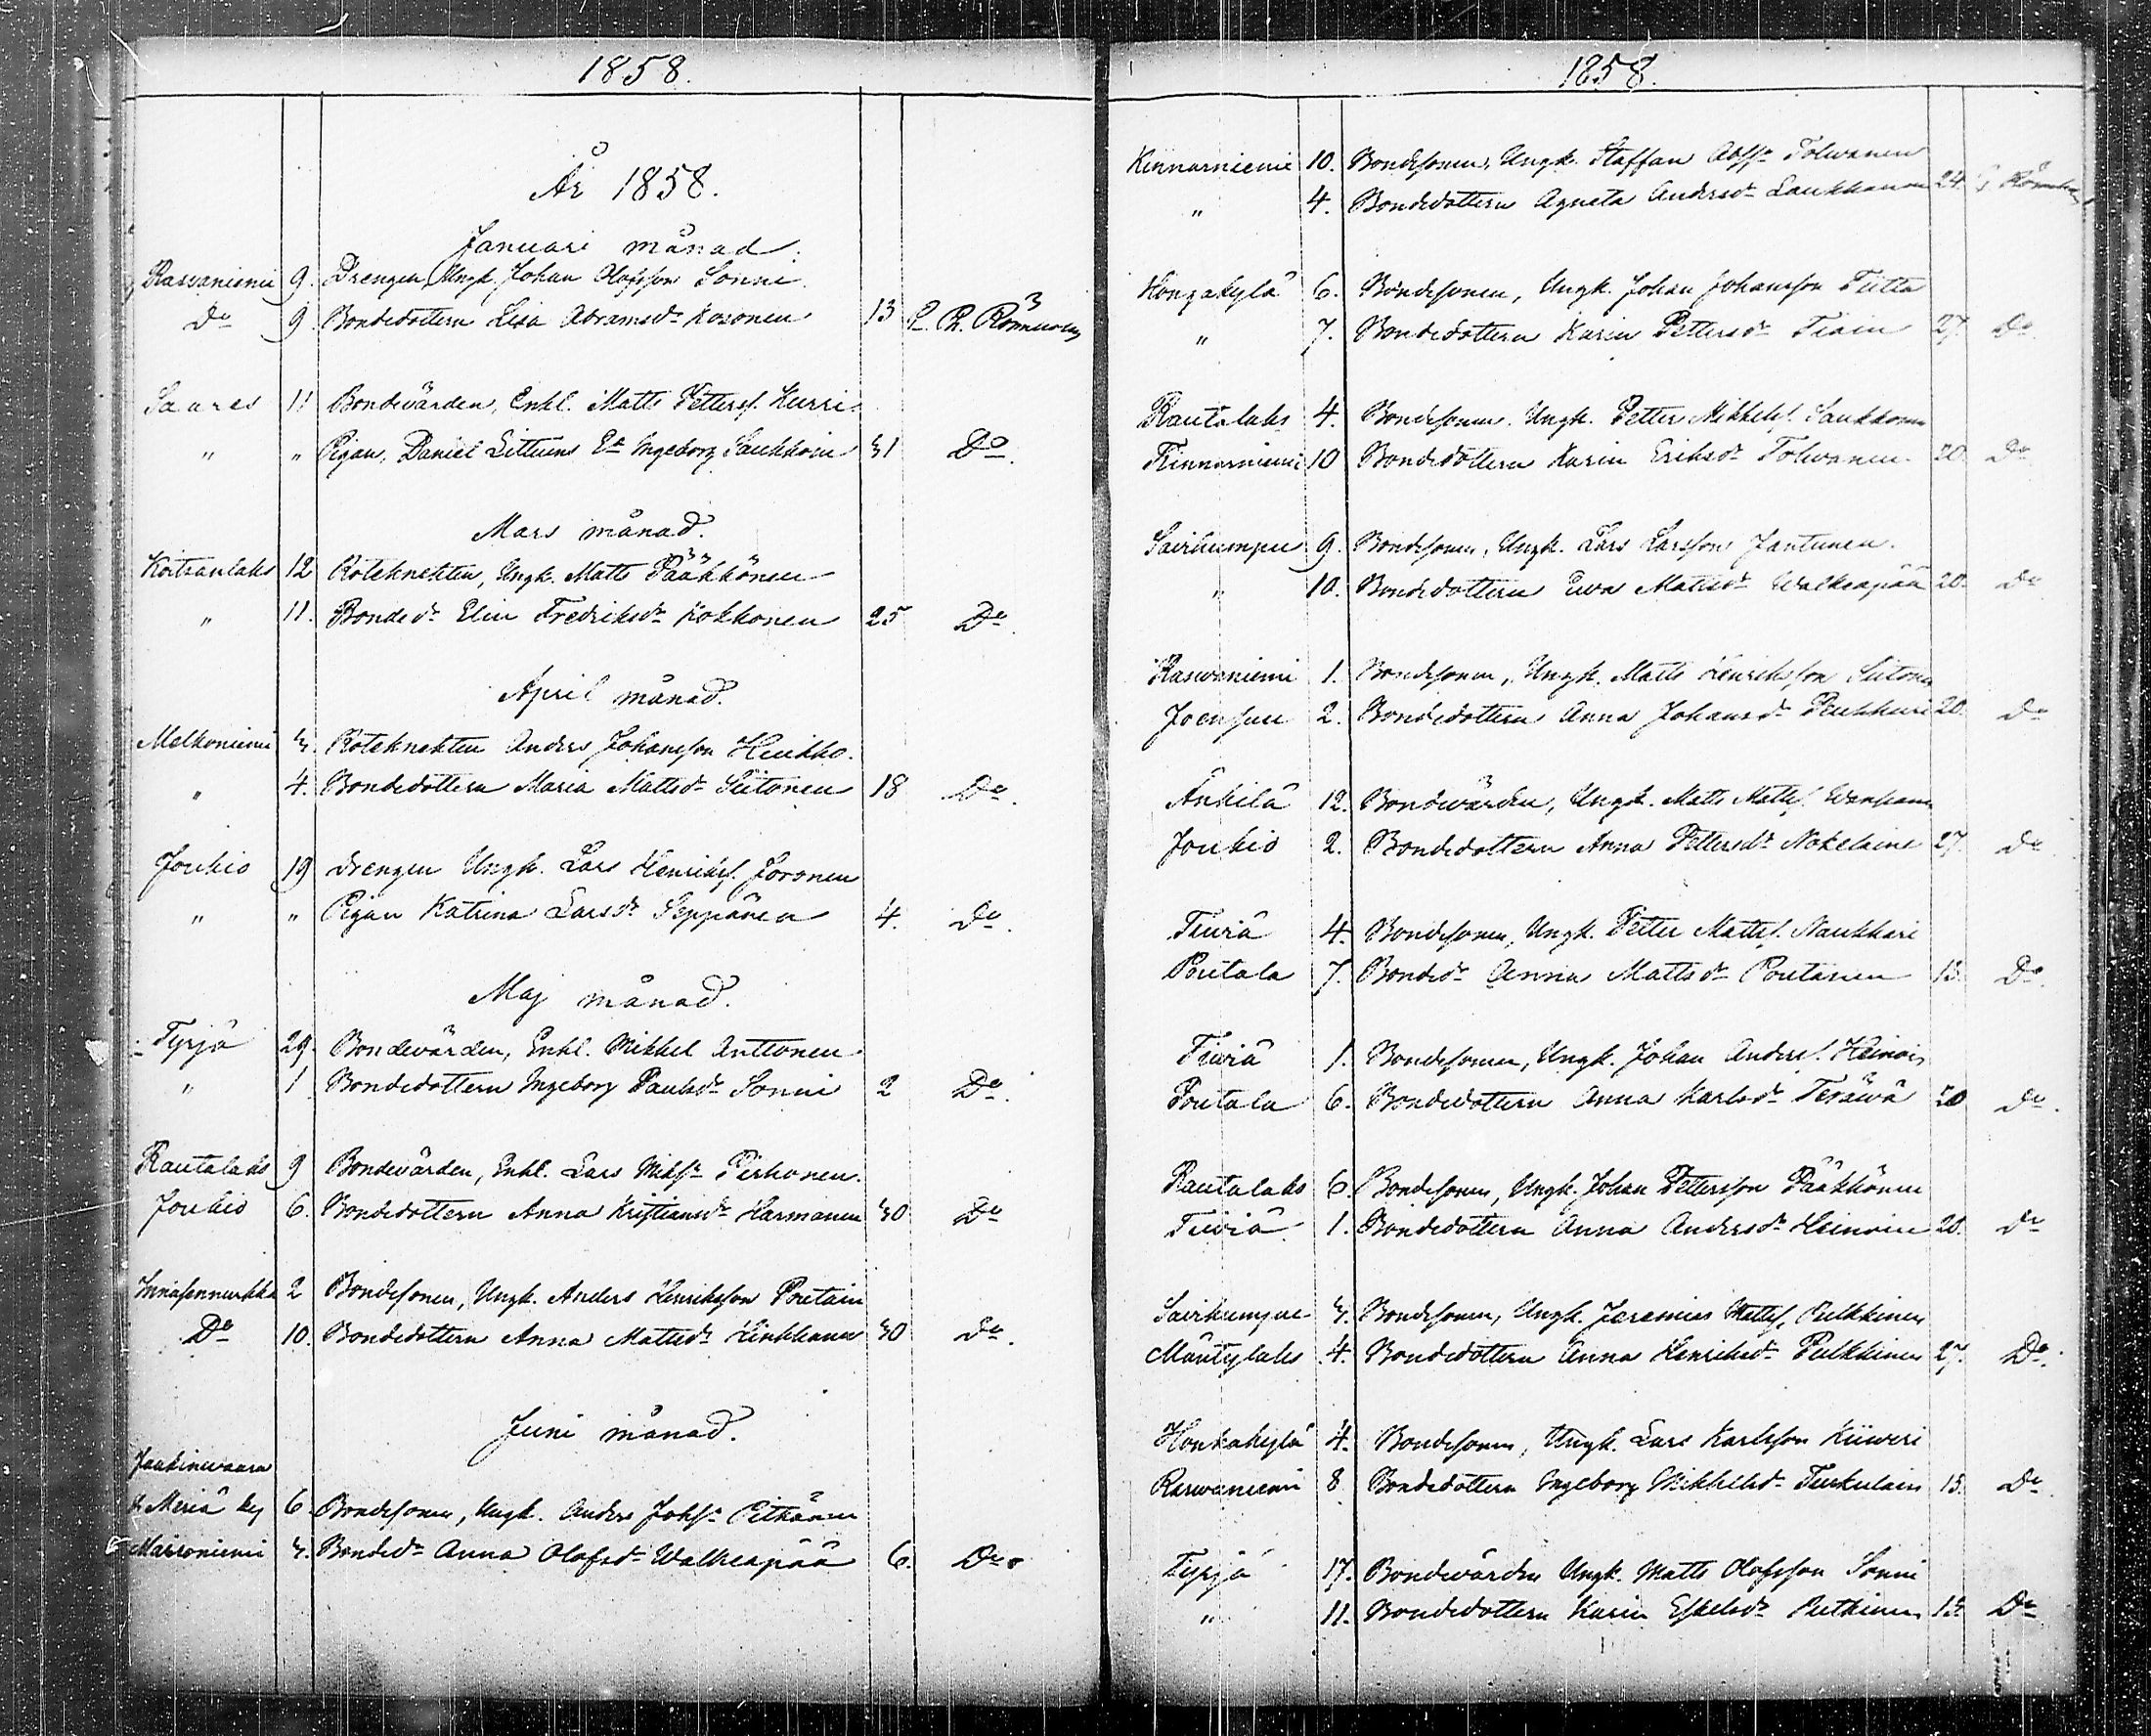 1858.
År 1858.
Januari månad.
Rasvaniemi 9. Drengen Ungk. Johan Olofsson Sonni
Do 9 Bondedottern Lisa Abramsdr Kosonen 13
Saares 11 Bondevärden, Enkl. Matts Petterss. Kurri
" " Pigan, Daniel Littuens Ea Ingeborg Saukkoin 31 Do.
Mars månad.
Koitsanlaks 12 Roteknekten, Ungk. Matts Pääkkönen
" 11. Bondedr Elin Fredriksdr Kokkonen 25 Do.
April månad.
Melkoniemi 3. Roteknekten Anders Johansson Heikko.
" 4. Bondedottern Maria Mattsdr Siitonen 18 Do.
Joukio 19 Drengen Ungk. Lars Henrikss. Joronen
" " Pigan Katrina Larsdr Seppänen 4. Do.
Maj månad.
Tyrjä 29. Bondevärden, Enkl. Mikkel Anttonen.
" 1 Bondedottern Ingeborg Paulsdr Sonni 2 Do.
Rautalaks 9 Bondevärden, Enkl. Lars Pirhonen.
Joukio 6. Bondedottern Anna Kristiansdr Harmanen 30 Do
2 Bondesonen, Ungk. Anders Henriksson Poutain
Do 10. Bondedottern Anna Mattsdr 30 Do.
Juni månad.
Jaakinwaara
6 Bondesonen, Ungk. Anders Johssn Pitkänen
3. Bondedr Anna Olofsdr Walkeapää 6. Do.
1858.
Kinnarniemi 10. Bondesonen, Ungk. Staffan Abssn Tolwanen
" 4. Bondedottern Agneta Andersdr Laukkanen 24.
Honkakylä 6. Bondesonen, Ungk. Johan Johansson Tiitta
" 7. Bondedottern Karin Pettersdr Tiain 27. Do
Rautalaks 4. Bondesonen, Ungk. Petter Mikkelss. Saukkonen
Kinnarniemi 10 Bondedottern Karin Eriksdr Tolwanen 20. Do
Sairkumpu 9. Bondesonen, Ungk. Lars Larsson Jantunen.
" 10. Bondedottern Ewa Mattsdr Walkeapää 20. Do
Raswaniemi 1. Bondesonen, Ungk. Matts Henriksson Siitonen
Joensuu 2. Bondedottern Anna Johansdr 20. Do
Änkilä 12. Bondevärden, Ungk. Matts Mattss.
Joukio 2. Bondedottern Anna Pettersdr Nokelaine 27. Do
Tiuviä 4. Bondesonen, Ungk. Petter Mattss. Naukkari
Poutala 7. Bondedr Anna Mattsdr Poutanen 13. Do.
Tiuviä 1. Bondesonen, Ungk. Johan Anderss. Heinoin
Poutala 6. Bondedottern Anna Karlsdr Teräwä 20 Do.
Rautalaks 6 Bondesonen, Ungk. Johan Pettersson Pääkkönen
Tiuviä 1. Bondedottern Anna Andersdr Heinoin 20. Do
Sairkumpu 3. Bondesonen, Ungk. Jeremias Mattss. Pulkkinen
Mäntylaks 4. Bondedottern Anna Henriksdr Pulkkinen 27. Do.
Honkakylä 4. Bondesonen, Ungk. Lars Karlsson Kiiweri
Raswaniemi 8 Bondedottern Ingeborg Mikkelsdr Turkulain 13. Do.
Tyrjä 17. Bondevärden Ungk. Matts Olofsson Sonni
" 11. Bondedottern Karin Eskelsdr Putkinen 13 Do